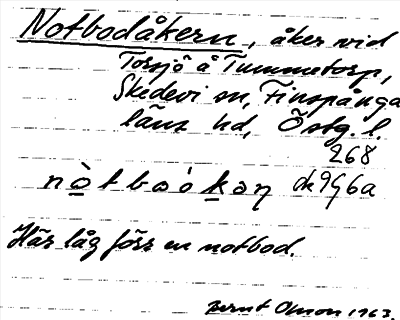 Notbodåkern, åker vid
Torsjö å Tummetorp,
Skedevi sn, Finspånga
läns hd, Östg. l.
268
nò̲tbᴏ́k̲əṇ dk 9G6a
Här låg förr en notbod.
Bernt Olsson 1963.